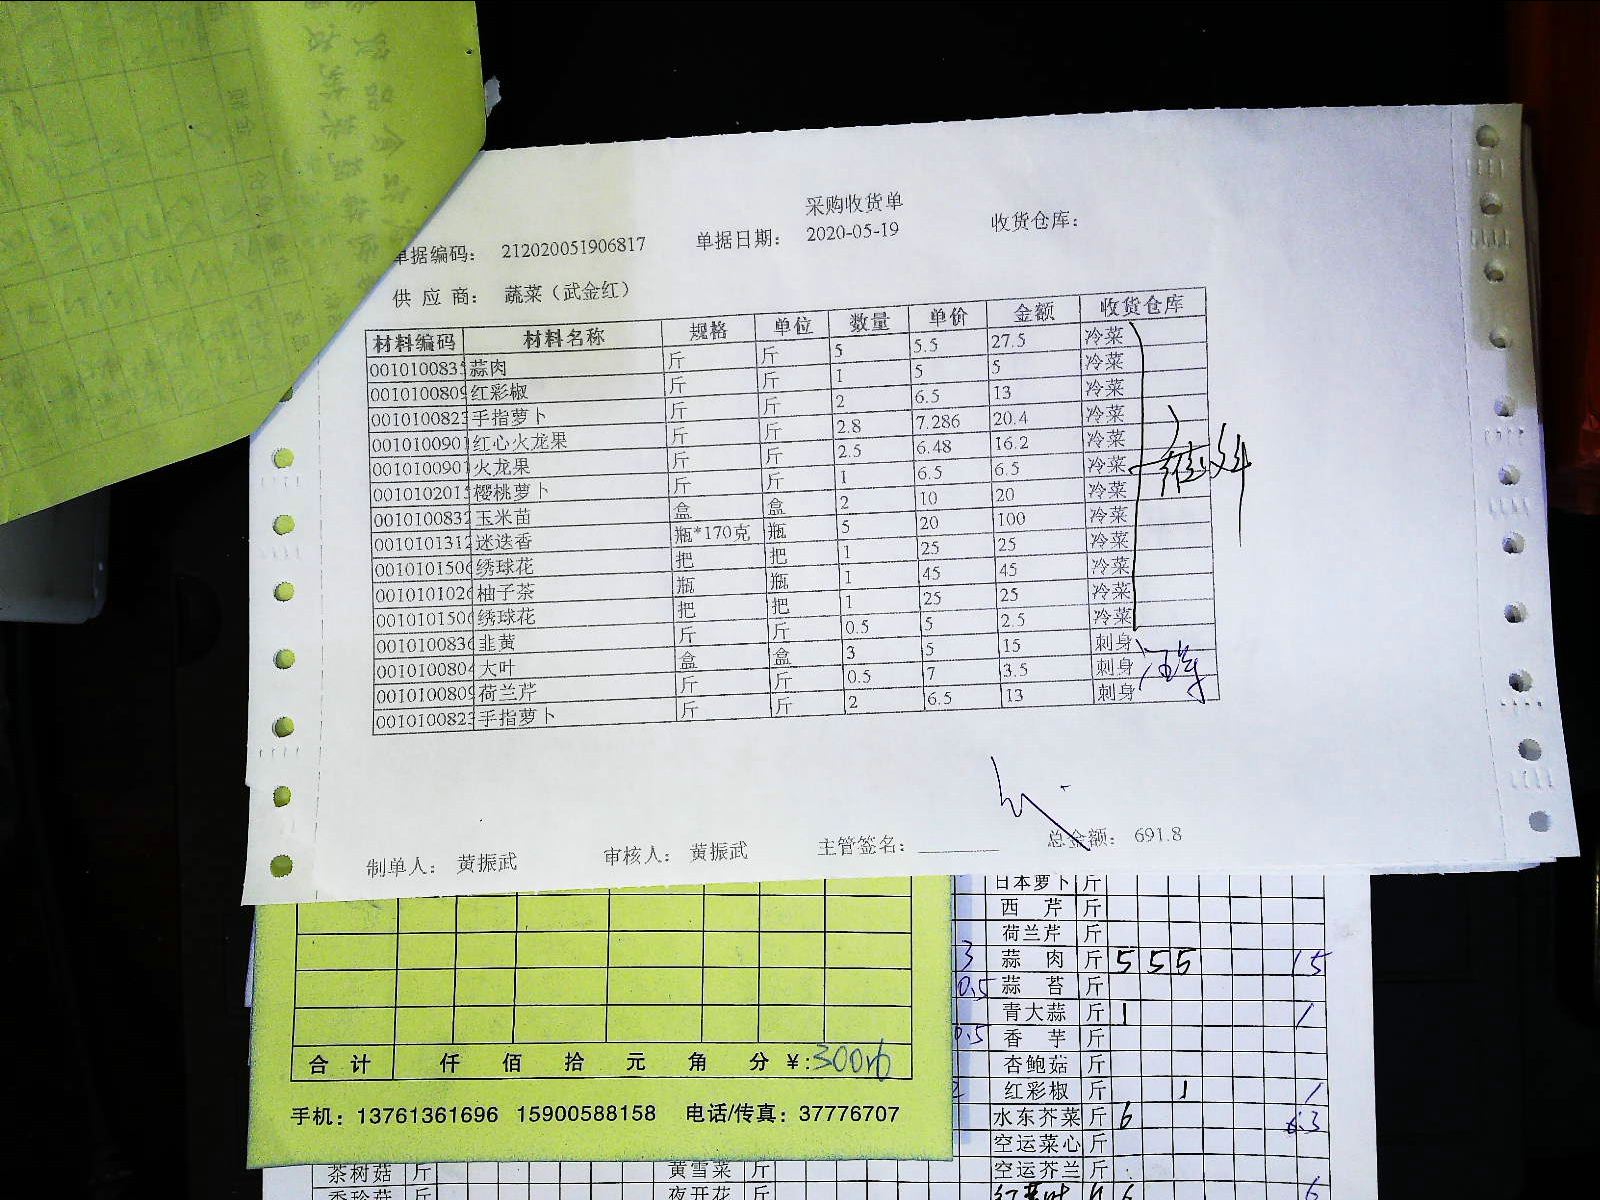 采购收货单
单据编码： 212020051906817 单据日期： 2020-05-19 收货仓库：
供 应 商： 蔬菜（武金红）
材料编码 材料名称 规格 单位 数量 单价 金额 收货仓库
0010100835 蒜肉 斤 斤 5 5.5 27.5 冷菜
0010100809 红彩椒 斤 斤 1 5 5 冷菜
0010100823 手指萝卜 斤 斤 2 6.5 13 冷菜
0010100901 红心火龙果 斤 斤 2.8 7.286 20.4 冷菜
0010100901 火龙果 斤 斤 2.5 6.48 16.2 冷菜
0010102015 樱桃萝卜 斤 斤 1 6.5 6.5 冷菜
0010100832 玉米苗 盒 盒 2 10 20 冷菜
0010101312 迷迭香 瓶*170克 瓶 5 20 100 冷菜
0010101506 绣球花 把 把 1 25 25 冷菜
0010101026 柚子茶 瓶 瓶 1 45 45 冷菜
0010101506 绣球花 把 把 1 25 25 冷菜
0010100836 韭黄 斤 斤 0.5 5 2.5 冷菜
0010100804 大叶 盒 盒 3 5 15 刺身
0010100809 荷兰芹 斤 斤 0.5 7 3.5 刺身
0010100823 手指萝卜 斤 斤 2 6.5 13 刺身
制单人： 黄振武 审核人： 黄振武 主管签名： 总金额： 691.8
日本萝卜 斤
西 芹 斤
荷兰芹 斤
3 蒜 肉 斤 5 5 5 15
0.5 蒜 苔 斤
青大蒜 斤 1 1
0.5 香 芋 斤
杏鲍菇 斤
红彩椒 斤 1 1
水东芥菜 斤 6 6.3
空运菜心 斤
空运芥兰 斤
合 计 仟 佰 拾 元 角 分 ¥: 300
手机：13761361696 15900588158 电话/传真：37776707
茶树菇 斤 黄雪菜 斤
夜开花 斤